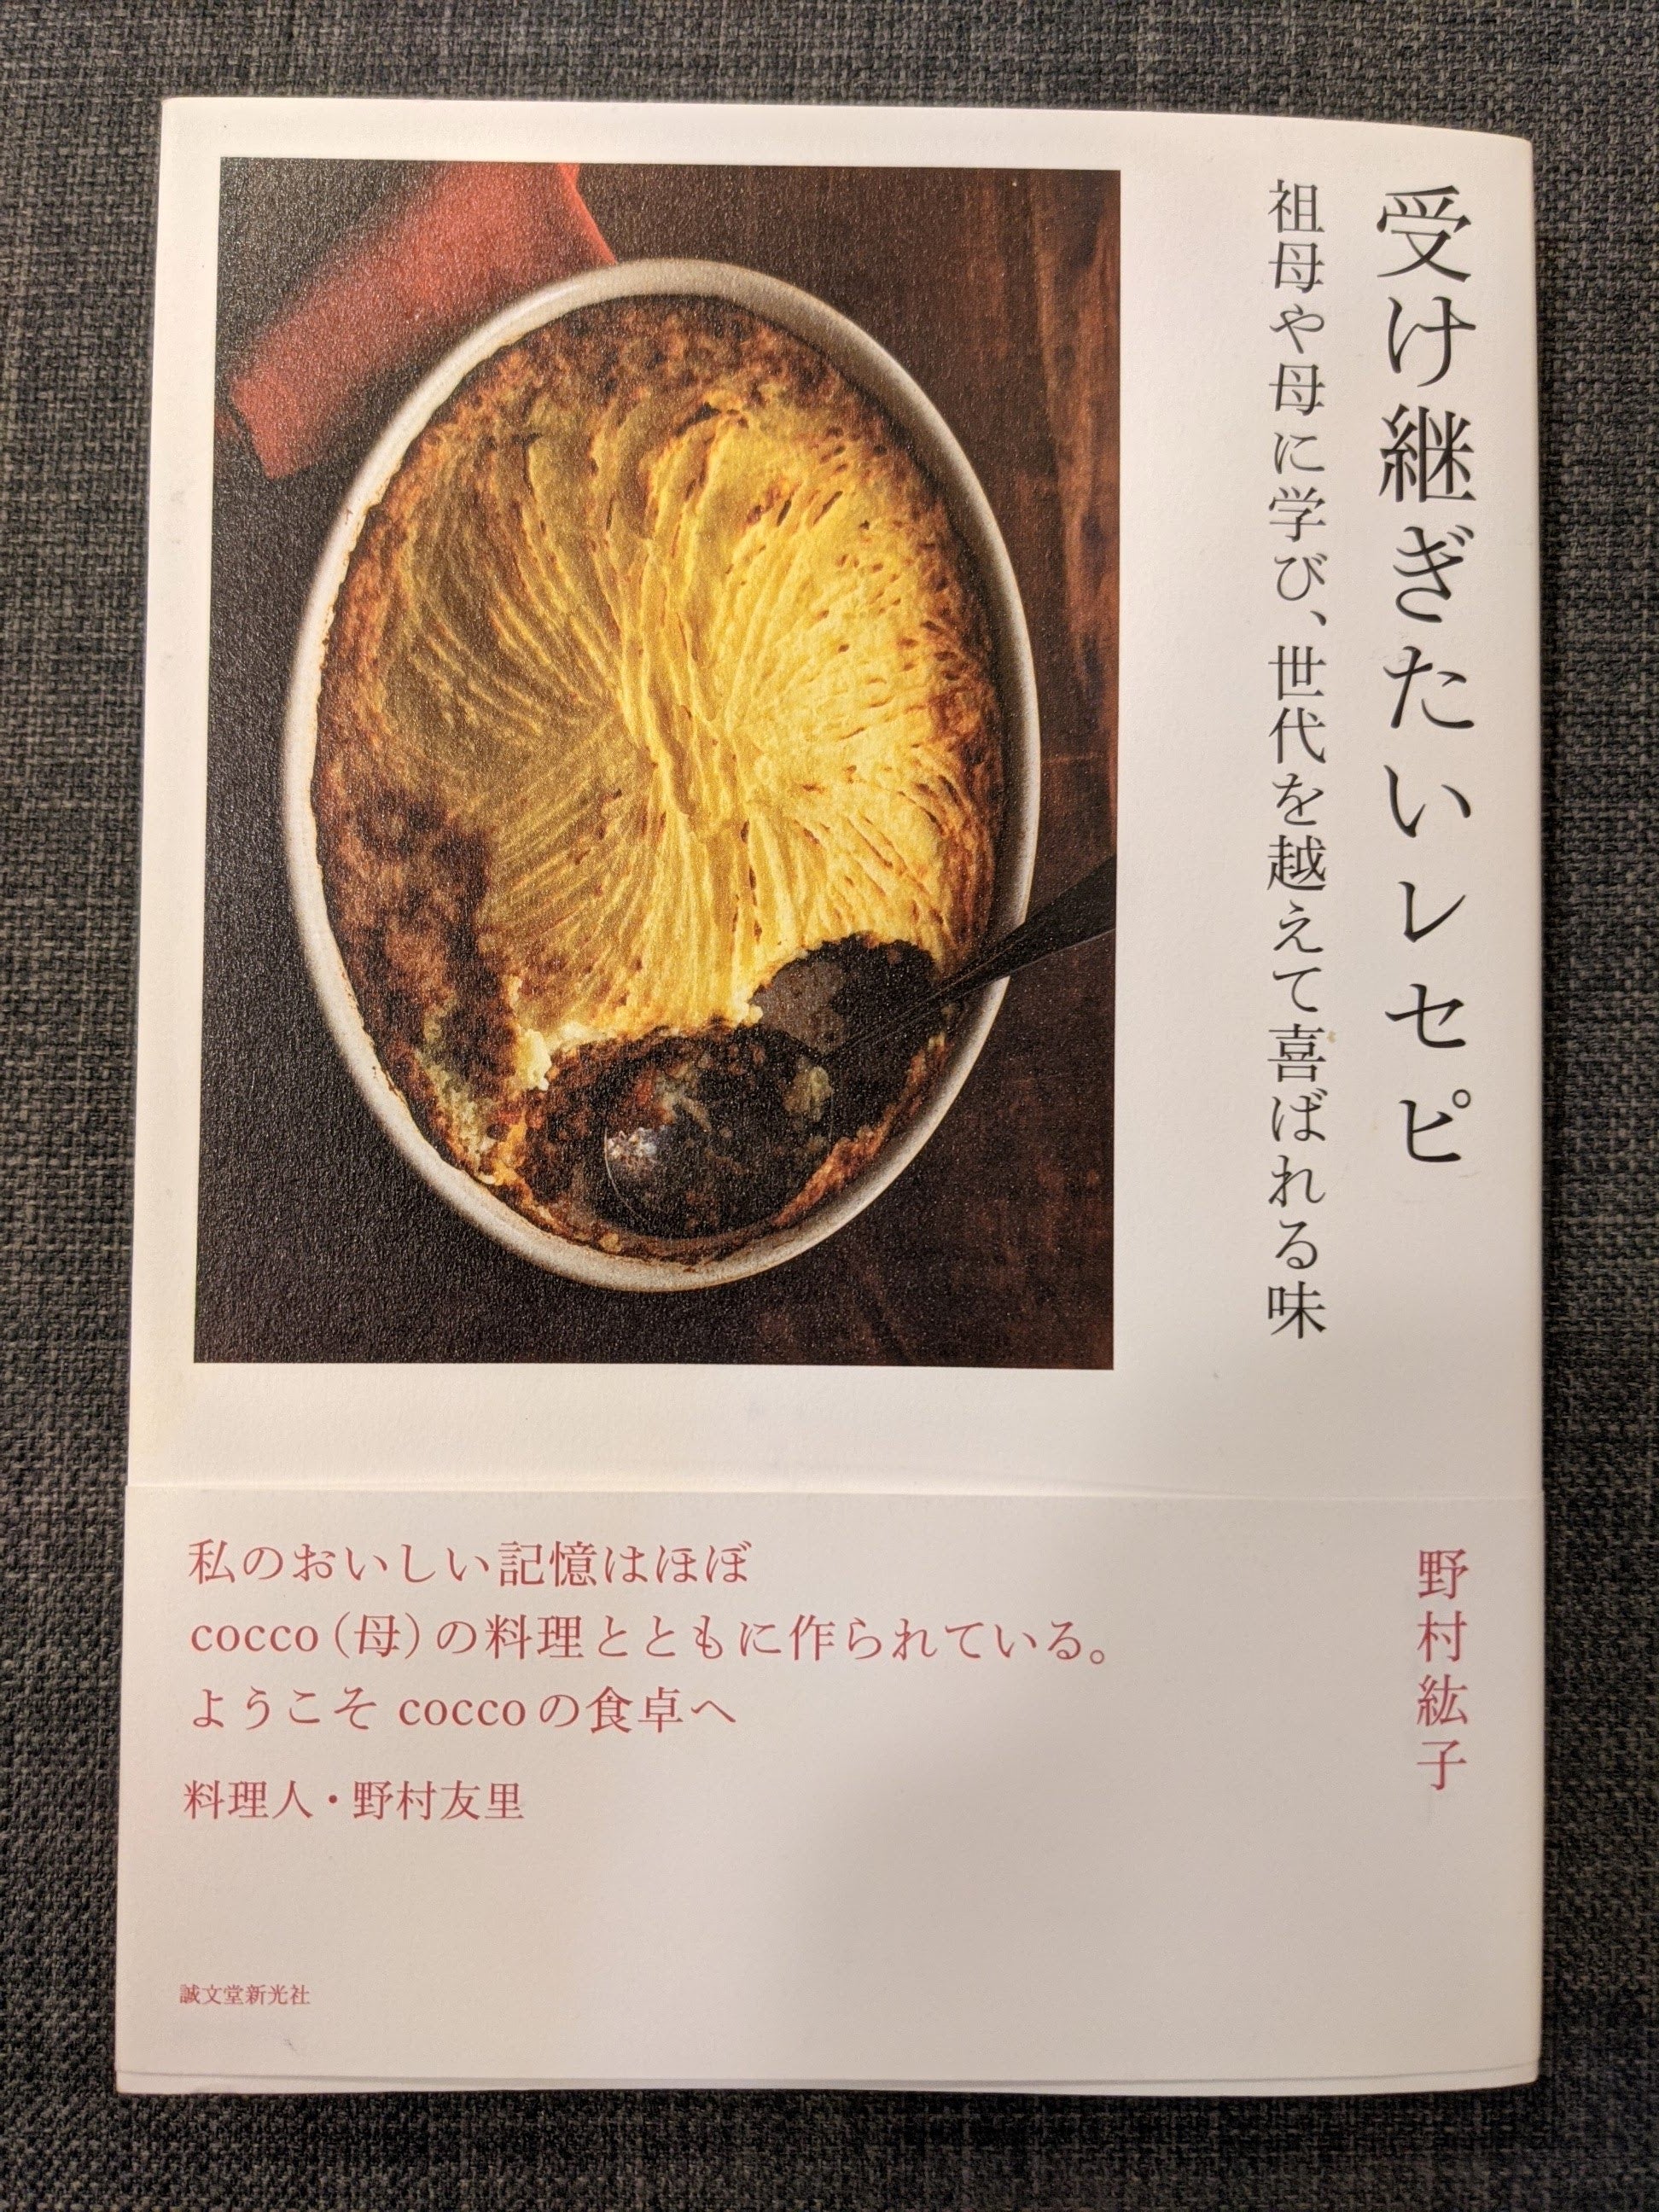 受け継ぎたいレセピ
祖母や母に学び、世代を越えて喜ばれる味
野村紘子
私のおいしい記憶はほぼ
cocco（母）の料理とともに作られている。
ようこそ coccoの食卓へ
料理人・野村友里
誠文堂新光社